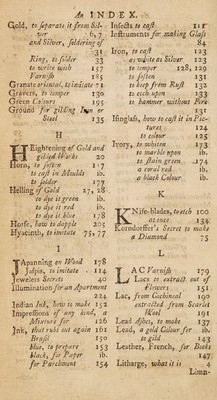 An INDEX.
Gold, to separate it from Silver 6, 7
and Silver, soldering of 31
Ring, to solder 33
to write with 157
Varnish 185
Granate oriental, to imitate 71
Gravers, to temper 130
Green Colours 195
Ground for gilding Iron or Steel 135
H
Heightening of Gold and gilded Works 20
Horn, to soften 117
to cast in Moulds ib.
to solder 177
Helling of Gold 27, 28
to dye it green ib.
to dye it red ib.
to dye it blue 178
Horse, how to dapple 205
Hyacinth, to imitate 75, 77
I
JApanning on Wood 178
Jaspis, to imitate 114
Jewelers Secrets 40
Illumination for an Apartment 224
Indian Ink, how to make 152
Impressions of any kind, a Mixture for 126
Ink, that rubs out again 161
Brasil 150
blue, to prepare 153
black, for Paper ib.
for Parchment 154
Insects to cast 111
Instruments for making Glass 84
Iron, to cast 123
as white as Silver 122
to temper 128, 129
to soften 131
to keep from Rust 133
to etch upon 133
to hammer without Fire 131
Isinglass, how to cast it in Pictures 124
to colour 125
Ivory, to whiten 173
to marble upon ib.
to stain green 174
a coral red ib.
a black Colour ib.
K
KNife-blades, to etch 100 at once 134
Korndorffer's Secret to make a Diamond 75
L
LAC Varnish 179
Lacs to extract out of Flowers 151
Lac, from Cochineal 190
extracted from Scarlet Wool 191
Lead Ashes, to make 137
Lead, a gold Colour for 146
to gild 143
Leather, French, for Books 147
Litharge, what it is 4